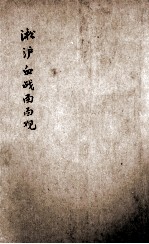 淞沪血战面面观